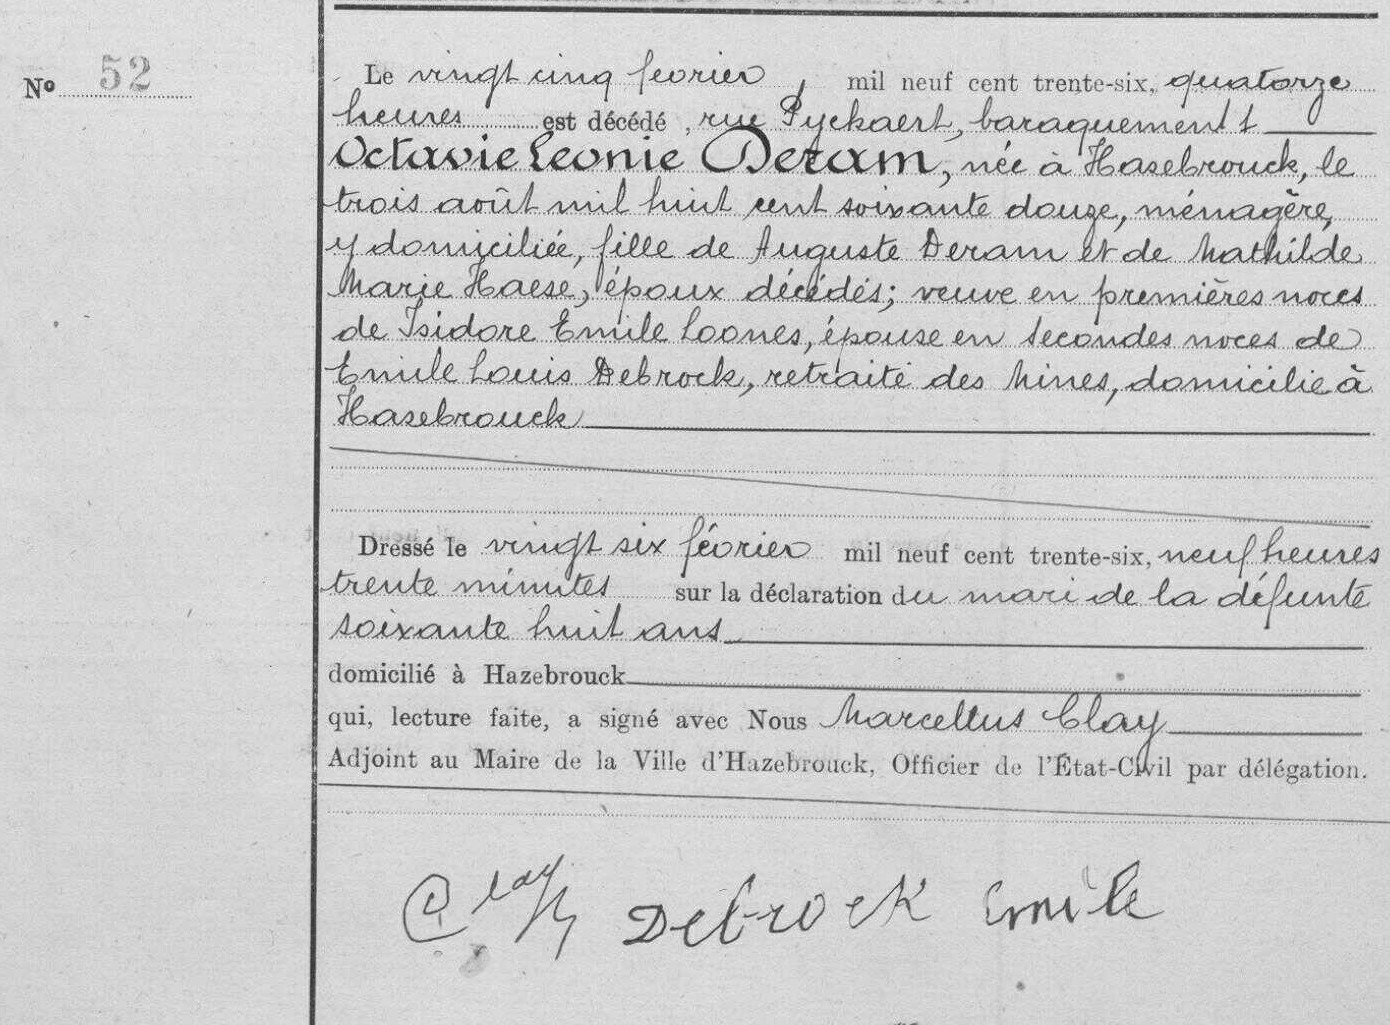 Nº 52
Le vingt cinq février, mil neuf cent trente-six, quatorze
heures est décédé, rue Pyckaert, baraquement 1
Octavie Leonie Deram, née à Hasebrouck, le
trois août mil huit cent soixante douze, ménagère,
y domiciliée, fille de Auguste Deram et de Mathilde
Marie Haese, époux décédés; veuve en premières noces
de Isidore Emile Loones, épouse en secondes noces de
Emile Louis Debrock, retraité des Mines, domicilié à
Hasebrouck
Dressé le vingt six février mil neuf cent trente-six, neuf heures
trente minutes sur la déclaration du mari de la défunte
soixante huit ans
domicilié à Hazebrouck
qui, lecture faite, a signé avec Nous Marcellus Clay
Adjoint au Maire de la Ville d'Hazebrouck, Officier de l'État-Civil par délégation.
Clay Debrock Emile